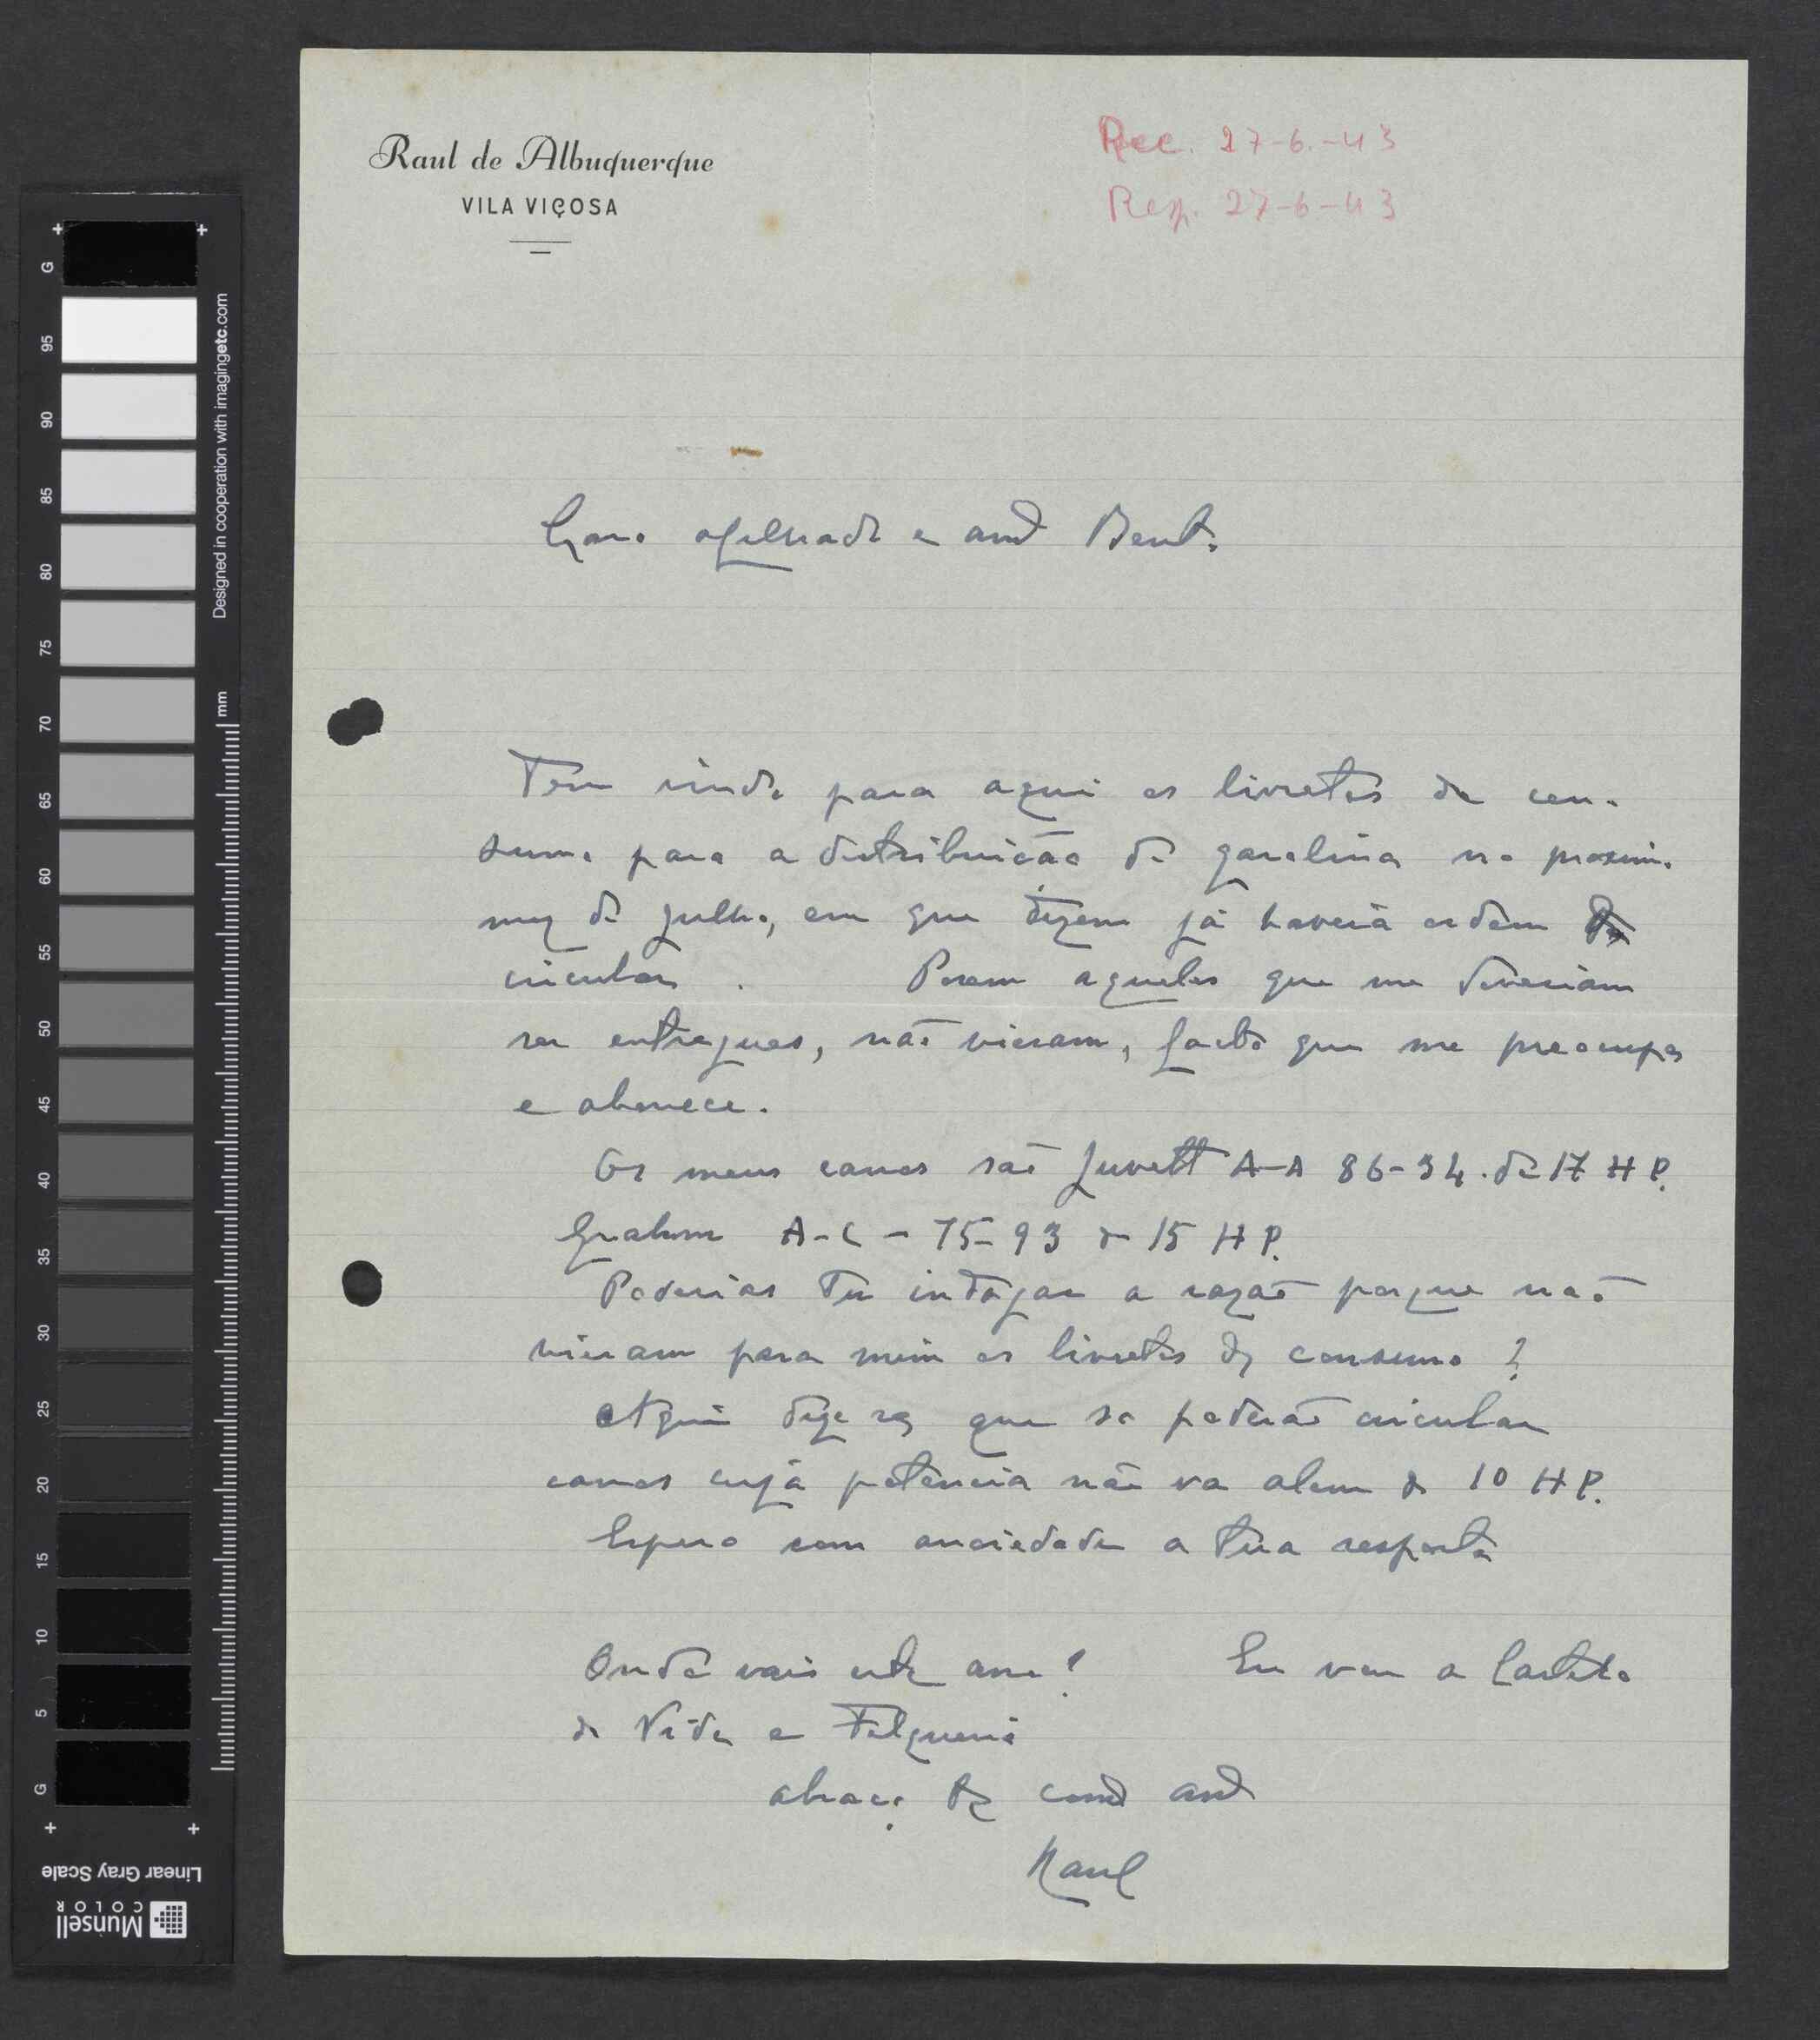 Raul de Albuquerque
VILA VIÇOSA
Rec. 27-6.-43
Resp. 27-6-43
Caro afilhado e amº Bento
Tem vindo para aqui os livretes de con-
sumo para a distribuição de gasolina no proximo
mez de julho, em que dizem já haverá ordem de
circular. Porem aqueles que me deveriam
ser entregues, não vieram, facto que me preocupa
e aborrece.
Os meus carros são A-A 86-34. de 17 H P.
Graham A-C - 75-93 de 15 H P.
Poderias tu indagar a razão porque não
vieram para mim os livretes de consumo?
Aqui dize se que só poderão circular
carros cujá potência não va alem de 10 H P.
Espero com anciedade a tua resposta
Onde vais este ano? Eu vou a Castelo
de Vide e Felgueira
abraço de amº
Raul
Designed in cooperation with imagingetc.com
mm
G 95 90 85 80 75 70 65 60 55 50 45 40 35 30 25 20 15 10 5 G
Linear Gray Scale
Munsell
COLOR